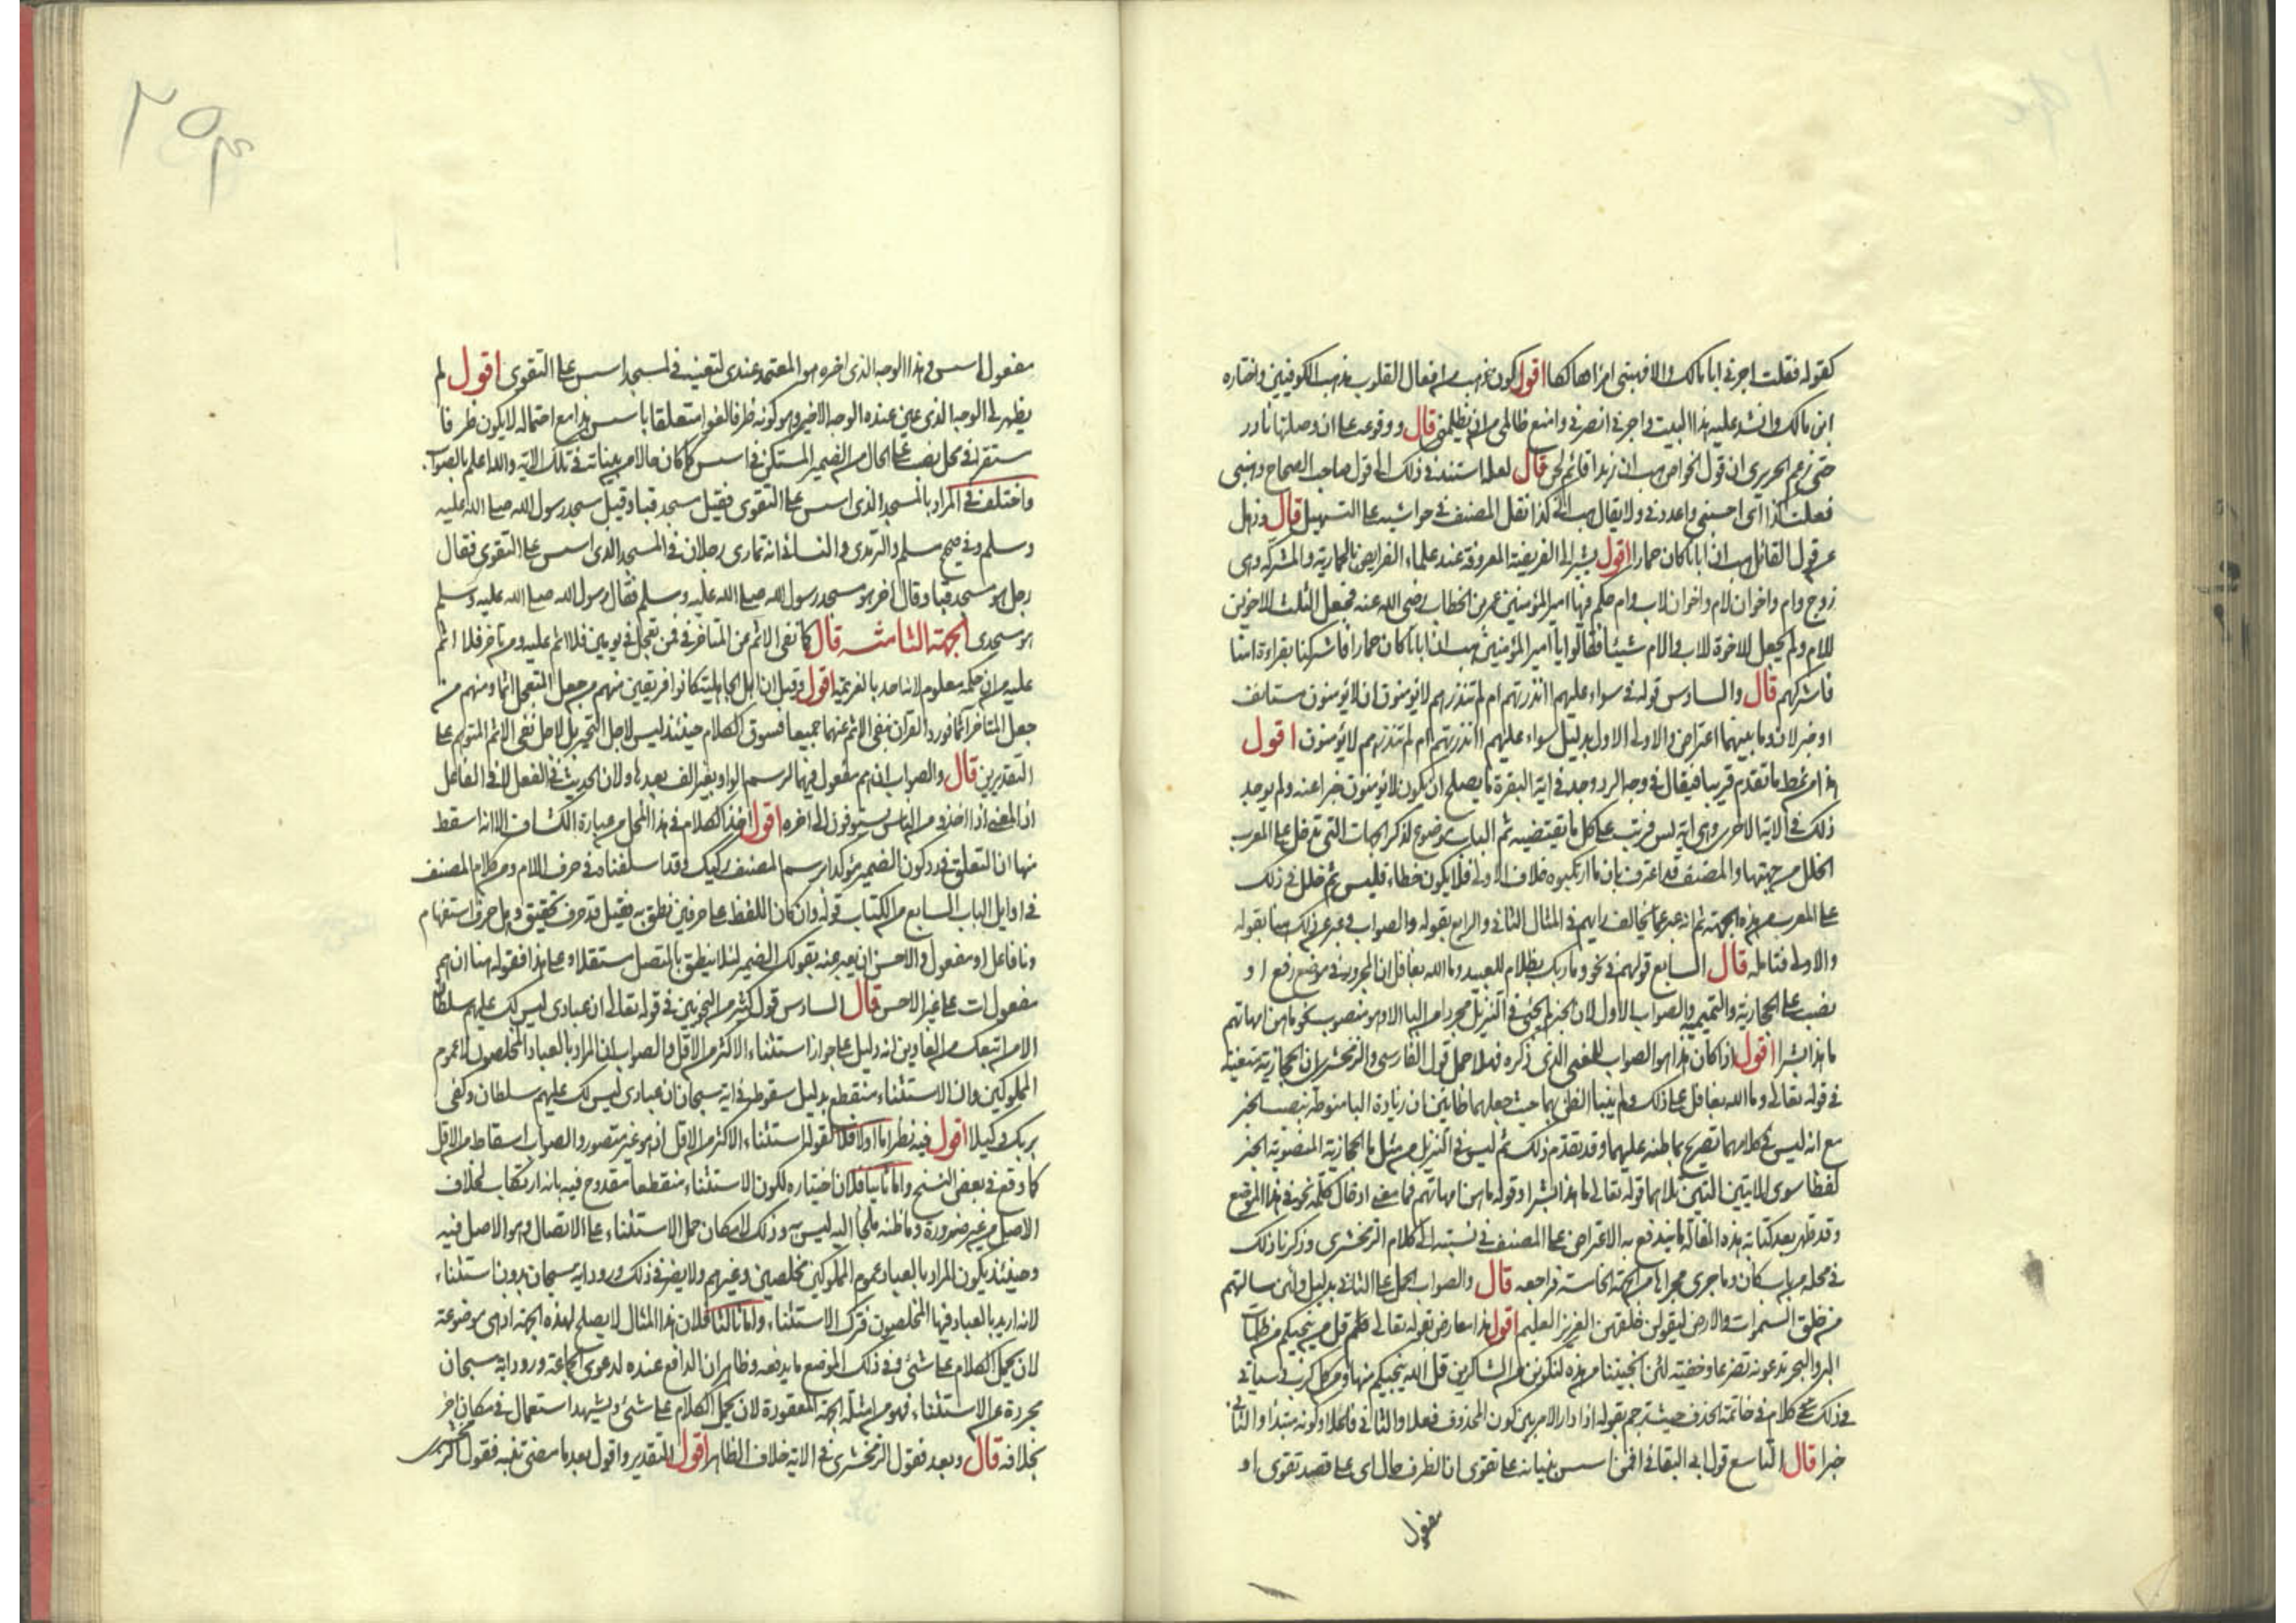 كقوله فقلت اجرني ابا مالك والا فهبني امرا هالكا اقول كون هب من افعال القلوب مذهب الكوفيين واختاره
ابن مالك وانشد عليه هذا البيت واجرني انصرني وامنع ظالمي من ان يظلمني قال ووقوعه على ان وصلتها نادر
حتى زعم الحريري ان قول الخواص هب ان زيدا قائم لحن قال لعله استند في ذلك الى قول صاحب الصحاح وهبني
فعلت كذا اي احسبني واعددني ولا يقال هب اني كذا نقل المصنف في حواشيه على التسهيل قال وذهل
عن قول القائل هب ان ابانا كان حمارا اقول يشير الى الفريضة المعروفة عند علماء الفرايض بالحمارية والمشركه وهى
زوج وام واخوان لام واخوان لاب وام حكم فيها امير المؤمنين عمر بن الخطاب رضى الله عنه فجعل الثلث للاخوين
للام ولم يجعل للاخوة للاب والام شيئا فقالوا يا امير المؤمنين هب ان ابانا كان حمارا فاشركنا بقراءة امنا
فاشركهم قال والسادس قولهم في سواء عليهم اانذرتهم ام لم تنذرهم لا يؤمنون ان لا يؤمنون مستانف
او خبر لان وما بينهما اعتراض والاولى الاول بدليل سواء عليهم اانذرتهم ام لم تنذرهم لا يؤمنون اقول
هذا من نمط ما تقدم قريبا فيقال في وجه الرد وجد في اية البقرة ما يصلح ان يكون لا يؤمنون خبرا عنه ولم يوجد
ذلك في الاية الاخرى وهى اية يس فرتب على كل ما يقتضيه ثم الباب موضوع لذكر الجهات التي تدخل على المعرب
الخلل من جهتها والمصنف قد اعترف بان ما ارتكبوه خلاف الاولى فلا يكون خطاء فليس ثم خلل في ذلك
على المعرب من هذه الجهة ثم انه عبر عما يخالف رايهم في المثال الثاني والرابع بقوله والصواب وعبر عن ذلك هنا بقوله
والاولى فتامله قال السابع قولهم في نحو وما ربك بظلام للعبيد وما الله بغافل ان المجرور في موضع رفع او
نصب على الحجازية والتميمية والصواب الاول لان الخبر لم يجئ في التنزيل مجردا من البا الا وهو منصوب نحو ما هن امهاتهم
ما هذا بشرا اقول اذا كان هذا هو الصواب للمعنى الذي ذكره فهلا حمل قول الفارسى والزمخشرى ان الحجازية متعينة
في قوله تعالى وما الله بغافل على ذلك ولم يثبنا الظن بهما حيث جعلهما ظانين ان زيادة البا منوطة بنصب الخبر
مع انه ليس في كلامهما تصريح بما ظنه عليهما وقد تقدم ذلك ثم ليس في التنزيل من مثل ما الحجازية المنصوبة الخبر
لفظا سوى الايتين اللتين تلاهما قوله تعالى ما هذا بشرا وقوله ما هن امهاتهم فما معنى ادخال كلمة نحو في هذا الموضع
وقد ظهر بعد كتابة هذه المقالة ما يندفع به الاعتراض على المصنف في نسبته الى كلام الزمخشرى وذكرنا ذلك
في محله من باب كان وما جرى مجراها من الجهة الخامسة فراجعه قال والصواب الحمل على الثاني بدليل ولئن سالتهم
من خلق السموات والارض ليقولن خلقهن العزيز العليم اقول هذا معارض بقوله تعالى قل من ينجيكم من ظلمات
البر والبحر تدعونه تضرعا وخفية لئن انجيتنا من هذه لنكونن من الشاكرين قل الله ينجيكم منها ومن كل كرب وسياتي
في ذلك كلام في خاتمة الحذف حيث ترجم بقوله اذا دار الامر بين كون المحذوف فعلا والثاني فاعلا وكونه مبتدأ والثاني
خبرا قال التاسع قول ابي البقا في افمن اسس بنيانه على تقوى ان الظرف حال اى على قصد تقوى او
مفعول
مفعول اسس وهذا الوجه الذي اخره هو المعتمد عندى لتعينه في لمسجد اسس على التقوى اقول لم
يظهر لى الوجه الذي عين عنده الوجه الاخير وهو كونه ظرفا لغوا متعلقا باسس هذا مع احتماله لان يكون ظرفا
مستقرا في محل نصب على الحال من الضمير المستكن في اسس كما كان حالا من بنيانه في تلك الاية والله اعلم بالصواب.
واختلف في المراد بالمسجد الذي اسس على التقوى فقيل مسجد قبا وقيل مسجد رسول الله صلى الله عليه
وسلم وفي صحيح مسلم والترمذى والنسائي انه تمارى رجلان في المسجد الذى اسس على التقوى فقال
رجل هو مسجد قبا وقال اخر هو مسجد رسول الله صلى الله عليه وسلم فقال رسول الله صلى الله عليه وسلم
هو مسجدى الجهة الثامنة قال كما نفى الاثم عن المتاخر في فمن تعجل في يومين فلا اثم عليه ومن تاخر فلا اثم
عليه مع ان حكمه معلوم لانه اخذ بالعزيمة اقول وقيل ان اهل الجاهلية كانوا فريقين منهم من جعل المتعجل آثما ومنهم من
جعل المتاخر آثما فورد القرآن بنفي الاثم عنهما جميعا فسوق الكلام حينئذ ليس لاجل التخيير بل لاجل نفى الاثم المتوهم على
التقديرين قال والصواب ان هم مفعول فيهما لرسم الواو بغير الف بعدها ولان الحديث في الفعل لا في الفاعل
اذ المعنى اذا اخذوا من الناس يستوفون الى اخره اقول اخذ الكلام في هذا المحل من عبارة الكشاف الا انه اسقط
منها ان التعلق في رد كون الضمير مؤكدا برسم المصحف ركيك وقد اسلفناه في حرف اللام ومن كلام المصنف
في اوايل الباب السابع من الكتاب قوله وان كان اللفظ على حرفين نطق به فقيل قد حرف تحقيق وهل حرف استفهام
ونا فاعل او مفعول والاحسن ان يعبر عنه بقولك الضمير لئلا ينطق بالمتصل مستقلا وعلى هذا فقوله هنا ان هم
مفعول ات على غير الاحسن قال السادس قول كثير من النحويين في قوله تعالى ان عبادى ليس لك عليهم سلطان
الا من اتبعك من الغاوين انه دليل على جواز استثناء الاكثر من الاقل والصواب ان المراد بالعباد المخلصون لا عموم
المملوكين وان الاستثناء منقطع بدليل سقوطه في اية سبحان ان عبادى ليس لك عليهم سلطان وكفى
بربك وكيلا اقول فيه نظر اما اولا فلان قوله استثناء الاكثر من الاقل اذ هو غير متصور والصواب اسقاط من الاقل
كما وقع في بعض النسخ واما ثانيا فلان اختياره لكون الاستثناء منقطعا مقدوح فيه بانه ارتكاب لخلاف
الاصل من غير ضرورة وما ظنه ملجأ اليه ليس به وذلك لامكان حمل الاستثناء على الاتصال وهو الاصل فيه
وحينئذ يكون المراد بالعباد عموم المملوكين مخلصين وغيرهم ولا يضر في ذلك ورود اية سبحان بدون استثناء
لانه اريد بالعباد فيها المخلصون فترك الاستثناء واما ثالثا فلان هذا المثال لا يصلح لهذه الجهة اذ هى موضوعة
لان يحمل الكلام على شئ وفي ذلك الموضع ما يدفعه وظاهر ان الدافع عنده لدعوى الجماعة ورود اية سبحان
مجردة عن الاستثناء فهو من امثلة الجهة المعقودة لان يحمل الكلام على شئ ويشهد استعمال في مكان اخر
بخلافه قال وبعد فقول الزمخشرى في الاية خلاف الظاهر اقول التقدير واقول بعد ما مضى تنبه فقول الزمخشرى